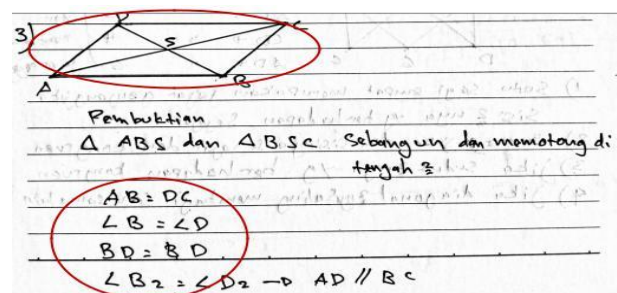 3)
D C
S
A B
Pembuktian
Δ ABS dan Δ BSC Sebangun dan memotong di
tengah 2
AB = DC
∠B = ∠D
BD = BD
∠B2 = ∠D2 → AD // BC